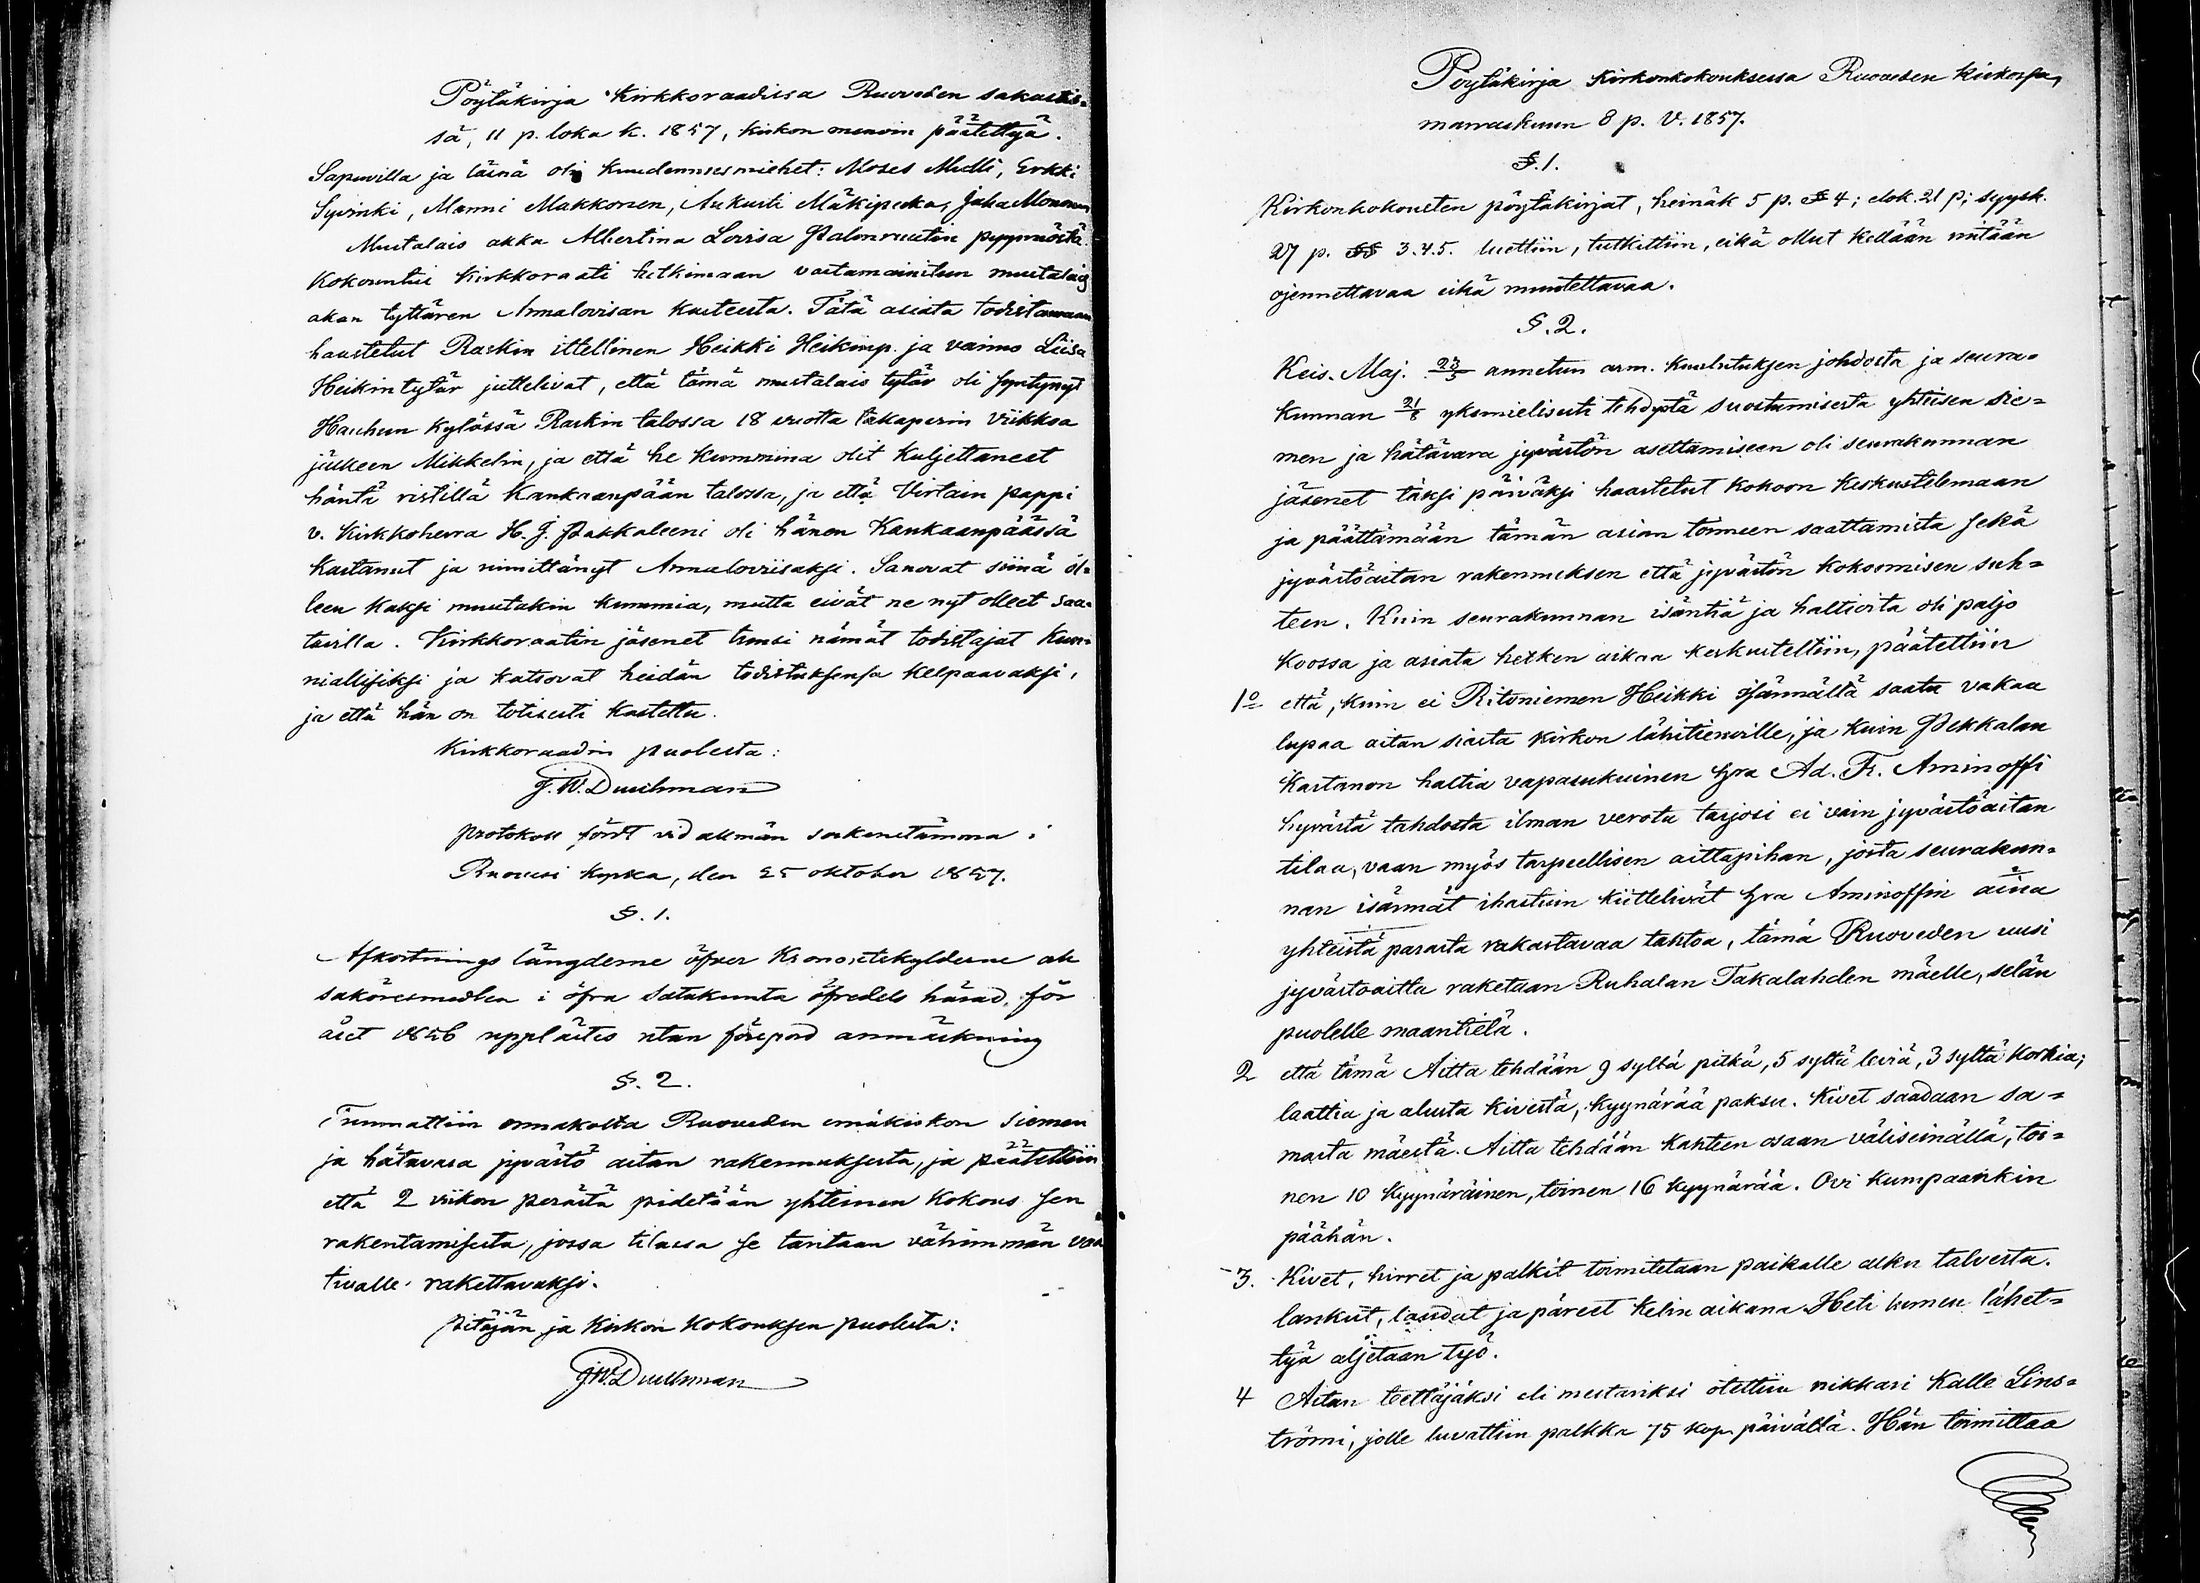 Pöytäkirja Kirkkoraadissa Ruoveden sakastis=
sä, 11 p. loka k. 1857, kirkon menoin päätettyä.
Sapuvilla ja läsnä oli Kuudennusmiehet: Moses Mulli, Erkki
Syvinki, Manni Makkonen, Aukusti Mäkipukka, Juha Mononen
Mustalais akka Albertina Lovisa Palonruutin pyynnöstä
kokountui Kirkkoraati tutkimaan vastamainitun mustalais
akan tyttären Annalovisan kasteesta. Tätä asiata todistamaan
haastetut Raskin ittellinen Heikki Heikinp. ja vaimo Liisa
Heikintytär juttelivat, että tämä mustalais tytär oli syntynyt
Hauhuun kylässä Raskin talossa 18 vuotta takaperin viikkoa
jälkeen Mikkelin, ja että he kummina olit kuljettaneet
häntä ristillä Kankaanpään talossa, ja että Virtain pappi
v. Kirkkoherra H. J. Pakkaleeni oli hänen Kankaanpäässä
kastanut ja nimittänyt Annaloviisaksi. Sanovat siinä ol=
leen kaksi muutakin kummia, mutta eivät ne nyt olleet saa=
tavilla. Kirkkoraatin jäsenet tunsi nämät todistajat kun=
niallisiksi ja katsovat heidän todistuksensa kelpaavaksi,
ja että hän on totisesti kastettu.
Kirkkoraadin puolesta:
J. W. Durchman
Protokoll fördt vid allmän sockenstämma i
Ruovesi kyrka, den 25 oktober 1857.
§. 1.
Afkortnings längderne öfver Kronoutskylderne och
saköresmedlen i öfra Satakunta öfredels härad, för
året 1856 upplästes utan förspord anmärkning
§. 2.
Tuumattiin ennakolta Ruoveden emäkirkon siemen
ja hätävara jyvästö aitan rakennuksesta, ja päätettiin
että 2 viikon perästä pidetään yhteinen kokous sen
rakentamisesta, jossa tilassa se taritaan vähimmän vaa
tivalle rakettavaksi.
Pitäjän ja Kirkon kokouksen puolesta:
J. W. Durchman
Pöytäkirja Kirkonkokouksessa Ruoveden kirkossa,
marraskuun 8 p. V. 1857.
§. 1.
Kirkonkokousten pöytäkirjat, heinäk 5 p. § 4; elok. 21 p; syysk.
27 p. §§ 3.4.5. luettiin, tutkittiin, eikä ollut kellään mitään
ojennettavaa eikä muutettavaa.
§. 2.
Keis. Maj. 23/5 annetun arm. kuulutuksen johdosta ja seura=
kunnan 21/8 yksmielisesti tehdystä suostumisesta yhteisen sie=
men ja hätävara jyvästön asettamiseen oli seurakunnan
jäsenet täksi päiväksi haastetut kokoon keskustelemaan
ja päättämään tämän asian toimeen saattamista sekä
jyvästöaitan rakennuksen että jyvästön kokoomisen suh=
teen. Kuin seurakunnan isäntiä ja haltioita oli paljo
koossa ja asiata hetken aikaa keskusteltiin, päätettiin
1o että, kuin ei Ritoniemen Heikki isännältä saatu vakaa
lupaa aitan siasta kirkon lähitienoille, ja kuin Pekkalan
Kartanon haltia vapasukuinen hra Ad. Fr. Aminoffi
hyvästä tahdosta ilman verota tarjosi ei vain jyvästöaitan
tilaa, vaan myös tarpeellisen aittapihan, josta seurakun=
nan isännät ihastuin kiittelivät hra Aminoffin aina
yhteistä parasta rakastavaa tahtoa, tämä Ruoveden uusi
jyvästöaitta raketaan Ruhalan Takalahden mäelle, selän
puolelle maantielä.
2 että tämä Aitta tehdään 9 syltä pitkä, 5 syltä leviä, 3 syltä korkia;
laattia ja alusta kivestä, kyynärää paksu. Kivet saadaan sa=
masta mäestä. Aitta tehdään kahteen osaan väliseinällä, toi=
nen 10 kyynäräinen, toinen 16 kyynärää. Ovi kumpaankin
päähän.
3. Kivet, hirret ja palkit toimitetaan paikalle alku talvesta.
lankut, laudat ja päreet kelin aikana. Heti lumen lähet=
tyä aljetaan työ.
4 Aitan teettäjäksi eli mestariksi otettiin nikkari Kalle Lins=
trömi, jolle luvattiin palkka 75 kop. päivältä. Hän toimittaa